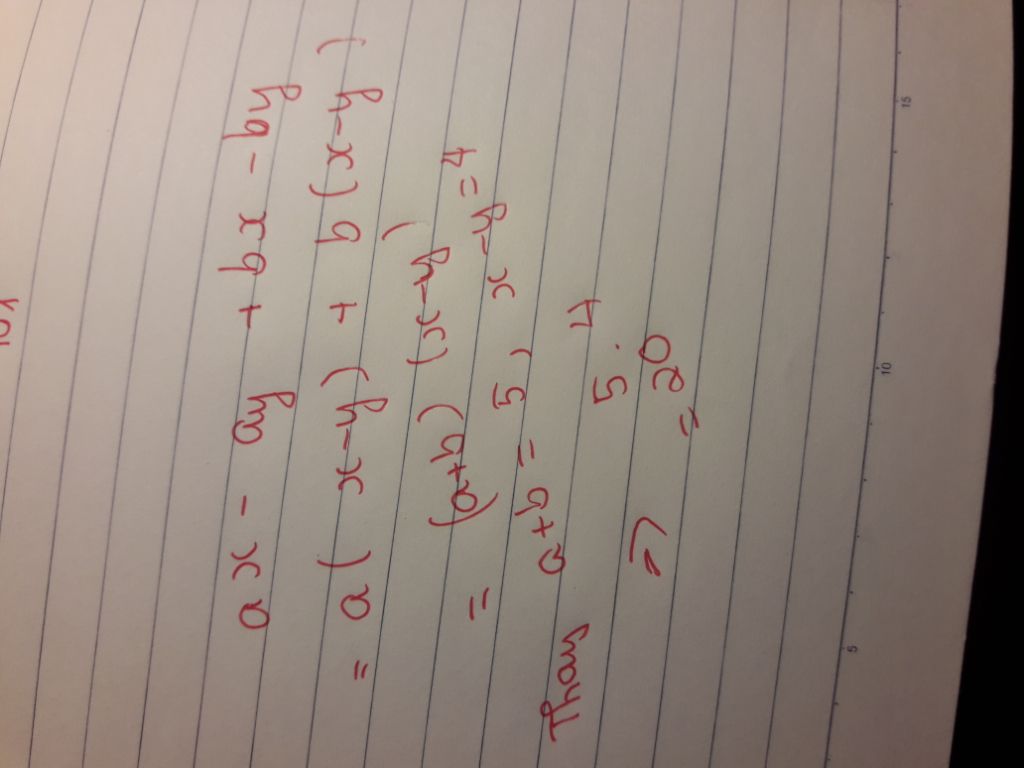 ax - ay + bx - by
= a(x-y) + b(x-y)
= (a+b)(x-y)
Thay a+b = 5, x-y = 4
=> 5.4
= 20
5
10
15